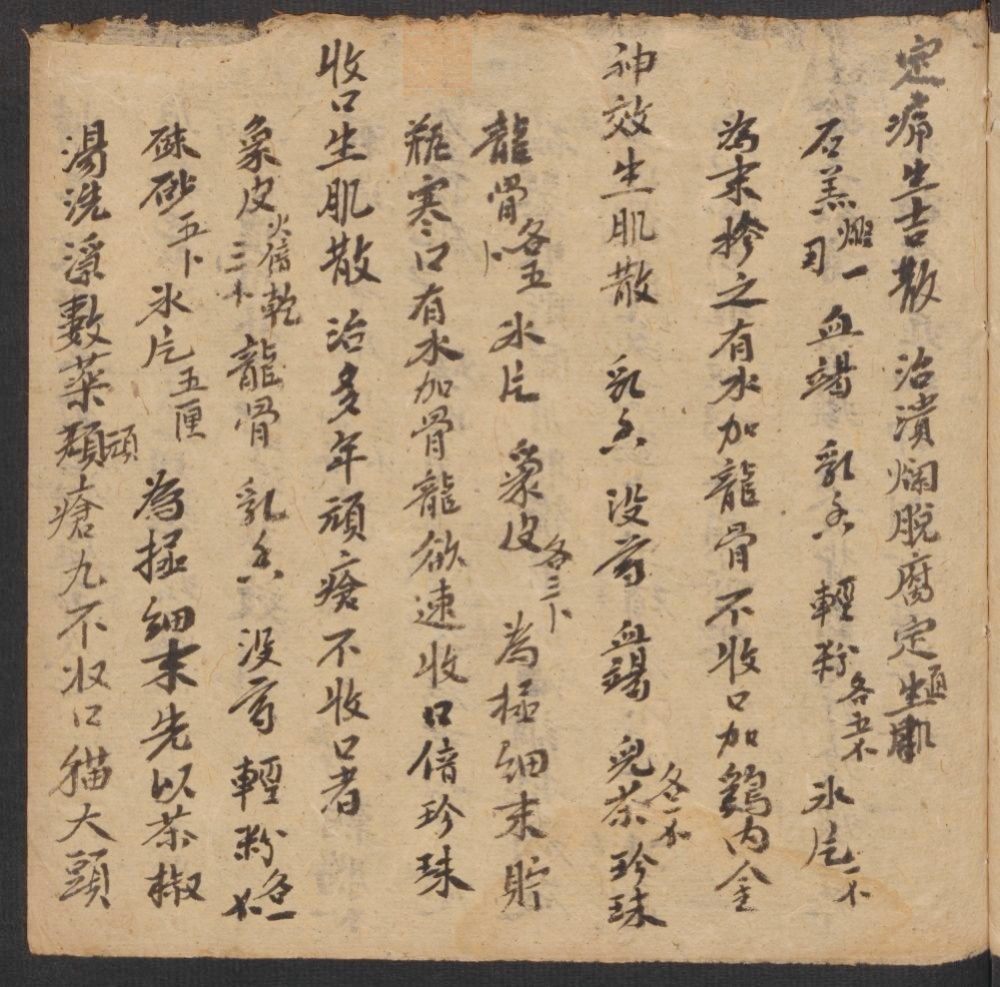 定痛生吉散 治潰爛脫腐定痛生肌
石羔 煅一刃 血竭 乳香 輕粉 各五木 氷片 一木
為末摻之有水加龍骨不收口加鷄內金
神效生肌散 乳香 没藥 血竭 兒茶 各一木 珍珠
龍骨 各五卜 氷片 象皮 各三卜 為極細末貯
瓶寒口有水加骨龍欲速收口倍珍珠
收口生肌散 治多年頑瘡不收口者
象皮 火焙乾三木 龍骨 乳香 没藥 輕粉 各一木
硃砂 五卜 氷片 五厘 為極細末先以茶椒
湯洗淨敷藥頑瘡九不收口猫大頭